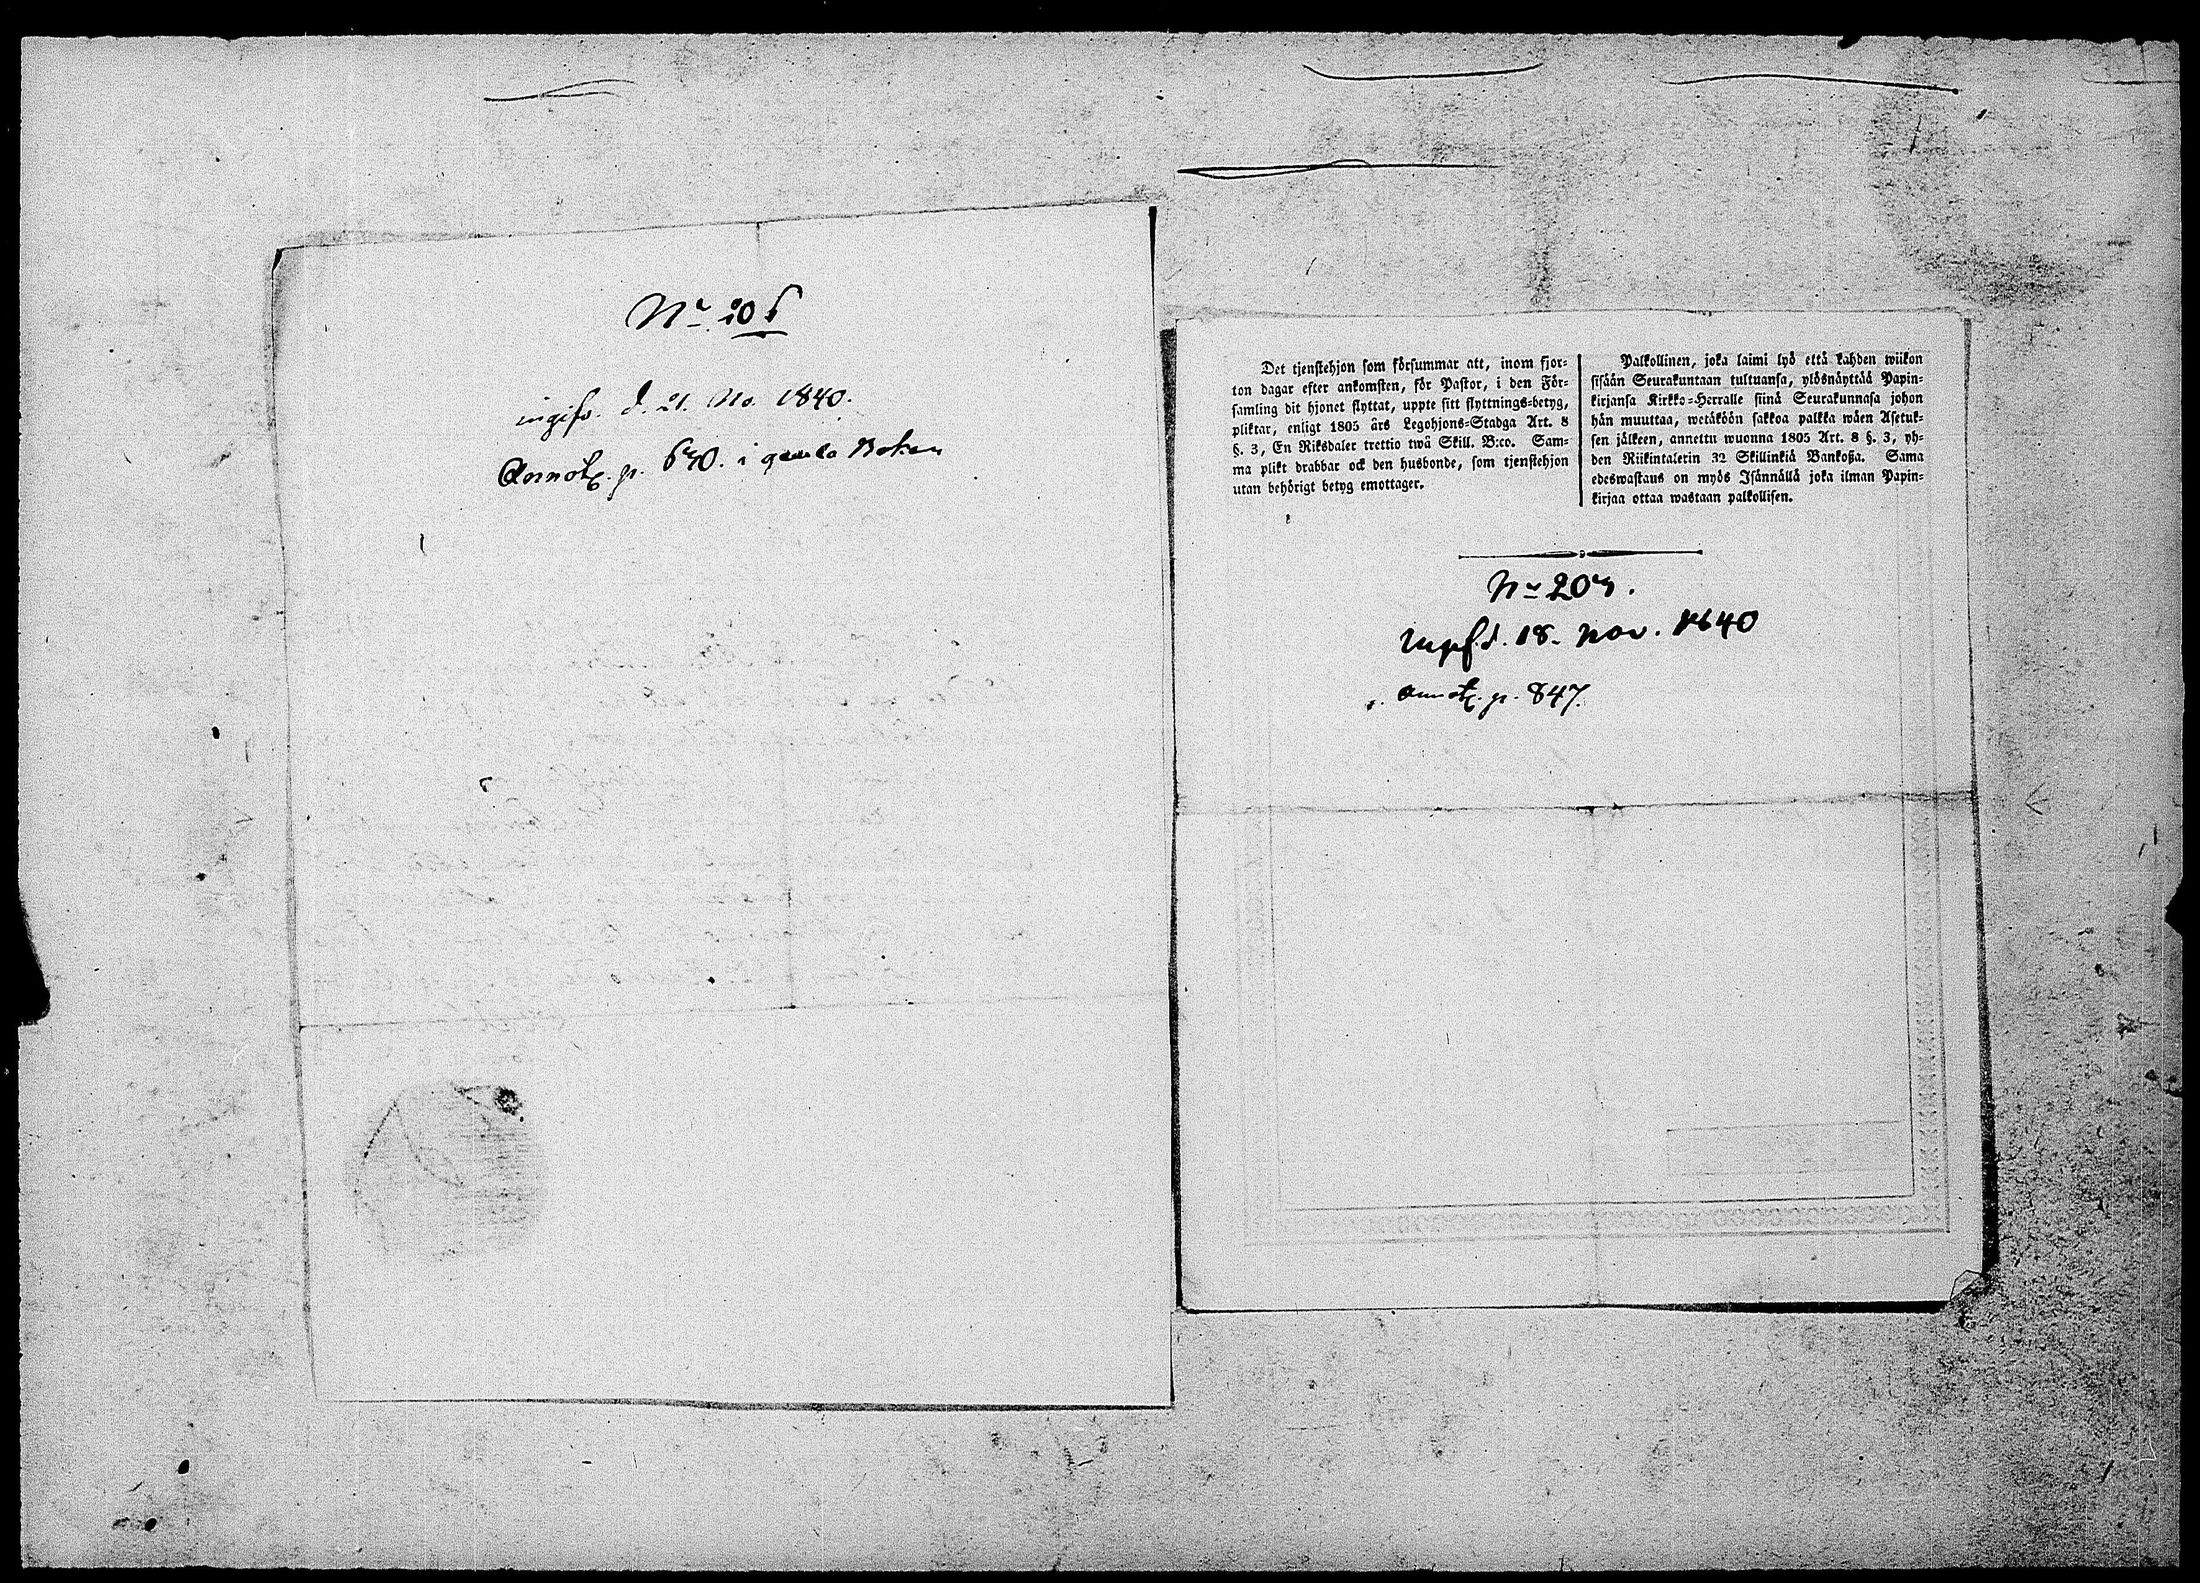 No 206
ingifv. d. 21. No. 1840.
Annot. p. 690. i gamla Boken
Det tjenstehjon som försummar att, inom fjor-
ton dagar efter ankomsten, för Pastor, i den För-
samling dit hjonet flyttat, uppte sitt flyttnings-betyg,
pliktar, enligt 1805 års Legohjons-Stadga Art. 8
§. 3, En Riksdaler trettio twå Skill. B:co. Sam-
ma plikt drabbar ock den husbonde, som tjenstehjon
utan behörigt betyg emottager.
Palkollinen, joka laimi lyö että kahden wiikon
sisään Seurakuntaan tultuansa, ylösnäyttää Papin-
kirjansa Kirkko-Herralle siinä Seurakunnasa johon
hän muuttaa, wetäköön sakkoa palkka wäen Asetuk-
sen jälkeen, annettu wuonna 1805 Art. 8 §. 3, yh-
den Riikintalerin 32 Skillinkiä Bankoßa. Sama
edeswastaus on myös Isännällä joka ilman Papin-
kirjaa ottaa wastaan palkollisen.
No 207.
d. 18. nov. 1840
annot. p. 847.